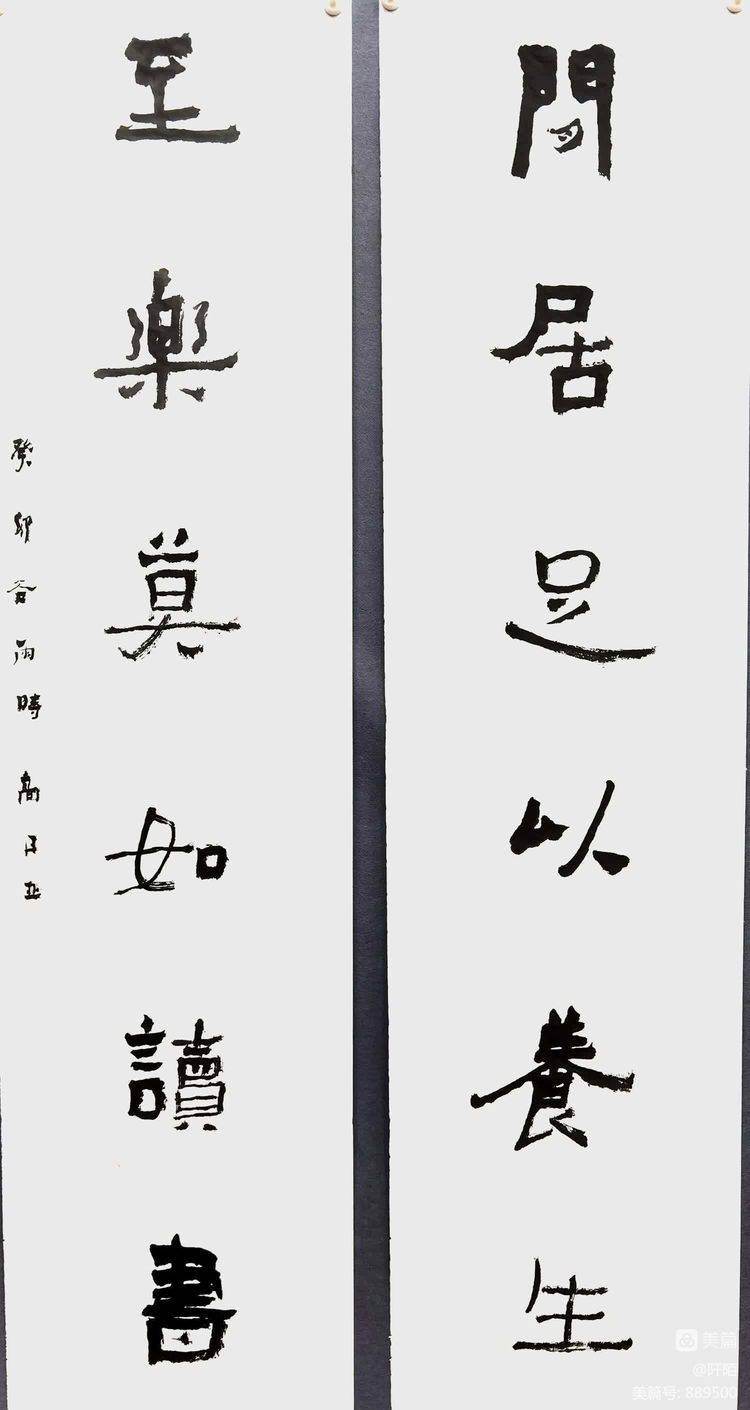 閒居足以養生
至樂莫如讀書
癸卯谷雨時 高
美篇
@阡陌
美篇号: 889500